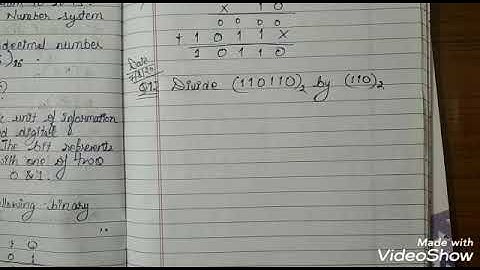 Number system
decimal number
)16
e unit of information
nd digital
The bit represents
with one of two
0 & 1.
ollowing binary
1 0
0 1
x 1 0
0 0 0 0
+ 1 0 1 1 x
1 0 1 1 0
Date
Divide (110110)2 by (110)2
Made with
VideoShow